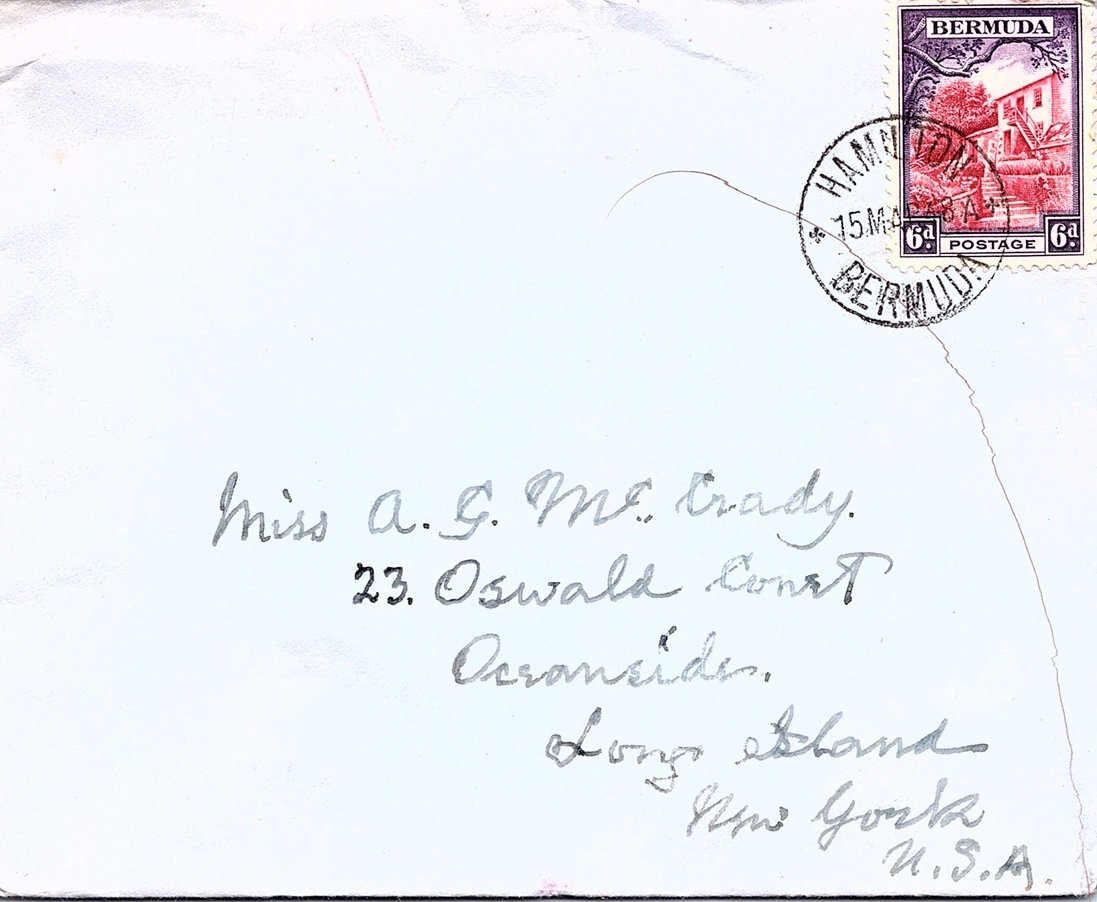 BERMUDA
HAMILTON
15.MA 8A
BERMUDA
6d POSTAGE 6d
Miss A. G. Mc. Crady.
23. Oswald Court
Oceanside.
Long Island
New York
U.S.A.